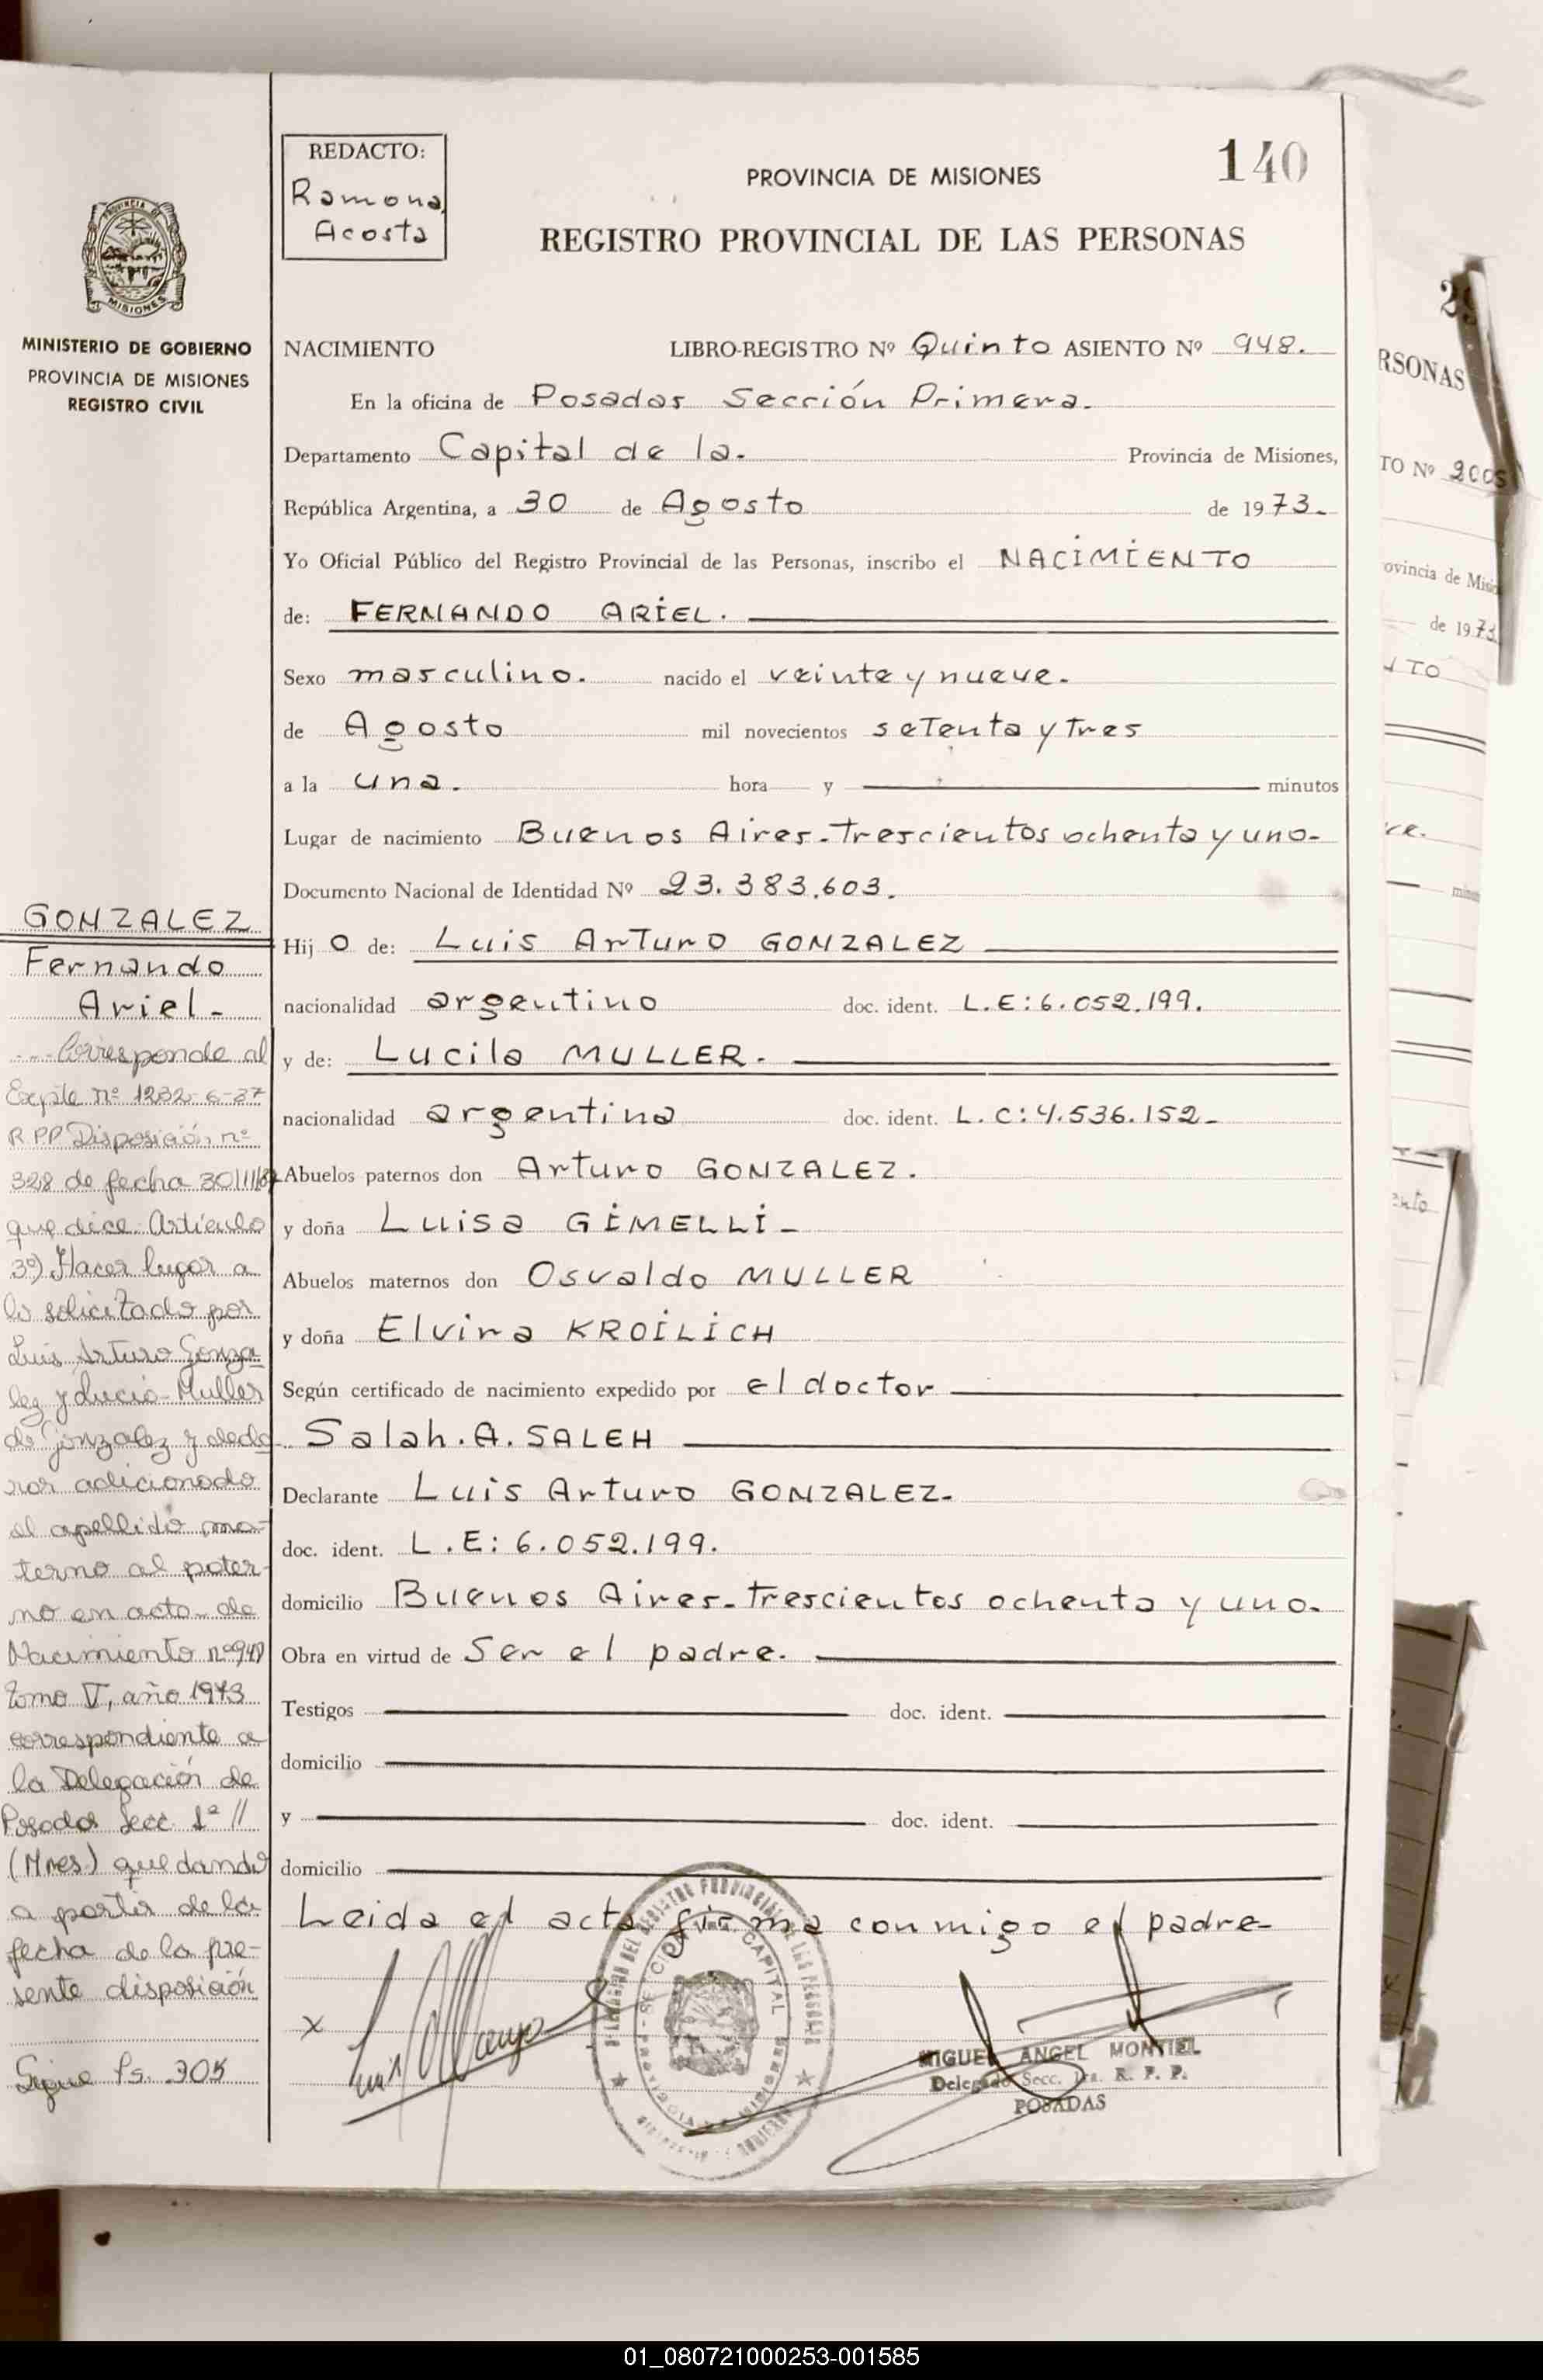 140
REDACTO:
Ramona
Acosta
PROVINCIA DE MISIONES
REGISTRO PROVINCIAL DE LAS PERSONAS
PROVINCIA DE
MISIONES
MINISTERIO DE GOBIERNO
PROVINCIA DE MISIONES
REGISTRO CIVIL
NACIMIENTO LIBRO-REGISTRO Nº Quinto ASIENTO Nº 948.
En la oficina de Posadas Sección Primera.
Departamento Capital de la. Provincia de Misiones,
República Argentina, a 30 de Agosto de 1973.
Yo Oficial Público del Registro Provincial de las Personas, inscribo el NACIMIENTO
de: FERNANDO ARIEL.
Sexo masculino. nacido el veinte y nueve.
de Agosto mil novecientos setenta y tres
a la una. hora y minutos
Lugar de nacimiento Buenos Aires-trescientos ochenta y uno-
Documento Nacional de Identidad Nº 23.383.603.
Hijo de: Luis Arturo GONZALEZ
nacionalidad argentino doc. ident. L.E:6.052.199.
y de: Lucila MULLER.
nacionalidad argentina doc. ident. L.C:4.536.152-
Abuelos paternos don Arturo GONZALEZ.
y doña Luisa GIMELLI-
Abuelos maternos don Osvaldo MULLER
y doña Elvira KROILICH
Según certificado de nacimiento expedido por el doctor
Salah.A.SALEH
Declarante Luis Arturo GONZALEZ-
doc. ident. L.E:6.052.199.
domicilio Buenos Aires-trescientos ochenta y uno.
Obra en virtud de Ser el padre.
Testigos doc. ident.
domicilio
y doc. ident.
domicilio
Leida el acta firma conmigo el padre-
x
MIGUEL ANGEL MONTIEL
Delegado Secc. 1ra. R. P. P.
POSADAS
GONZALEZ
Fernando
Ariel-
Corresponde al
Expte nº 1232-6-87
R.P.P Disposición nº
328 de fecha 30/11/87
que dice: Artículo
3º) Hacer lugar a
lo solicitado por
Luis Arturo Gonza
lez y Lucia Muller
de Gonzalez y decla
rar adicionado
el apellido ma-
terno al pater-
no en acta de
Nacimiento nº948
tomo V, año 1973
correspondiente a
la Delegación de
Posadas Secc. 1ª //
(Mnes) quedando
a partir de la
fecha de la pre-
sente disposición
Sigue Fs. 305
RSONAS
TO Nº 2005
ovincia de Misio
de 1973
NTO
01_080721000253-001585